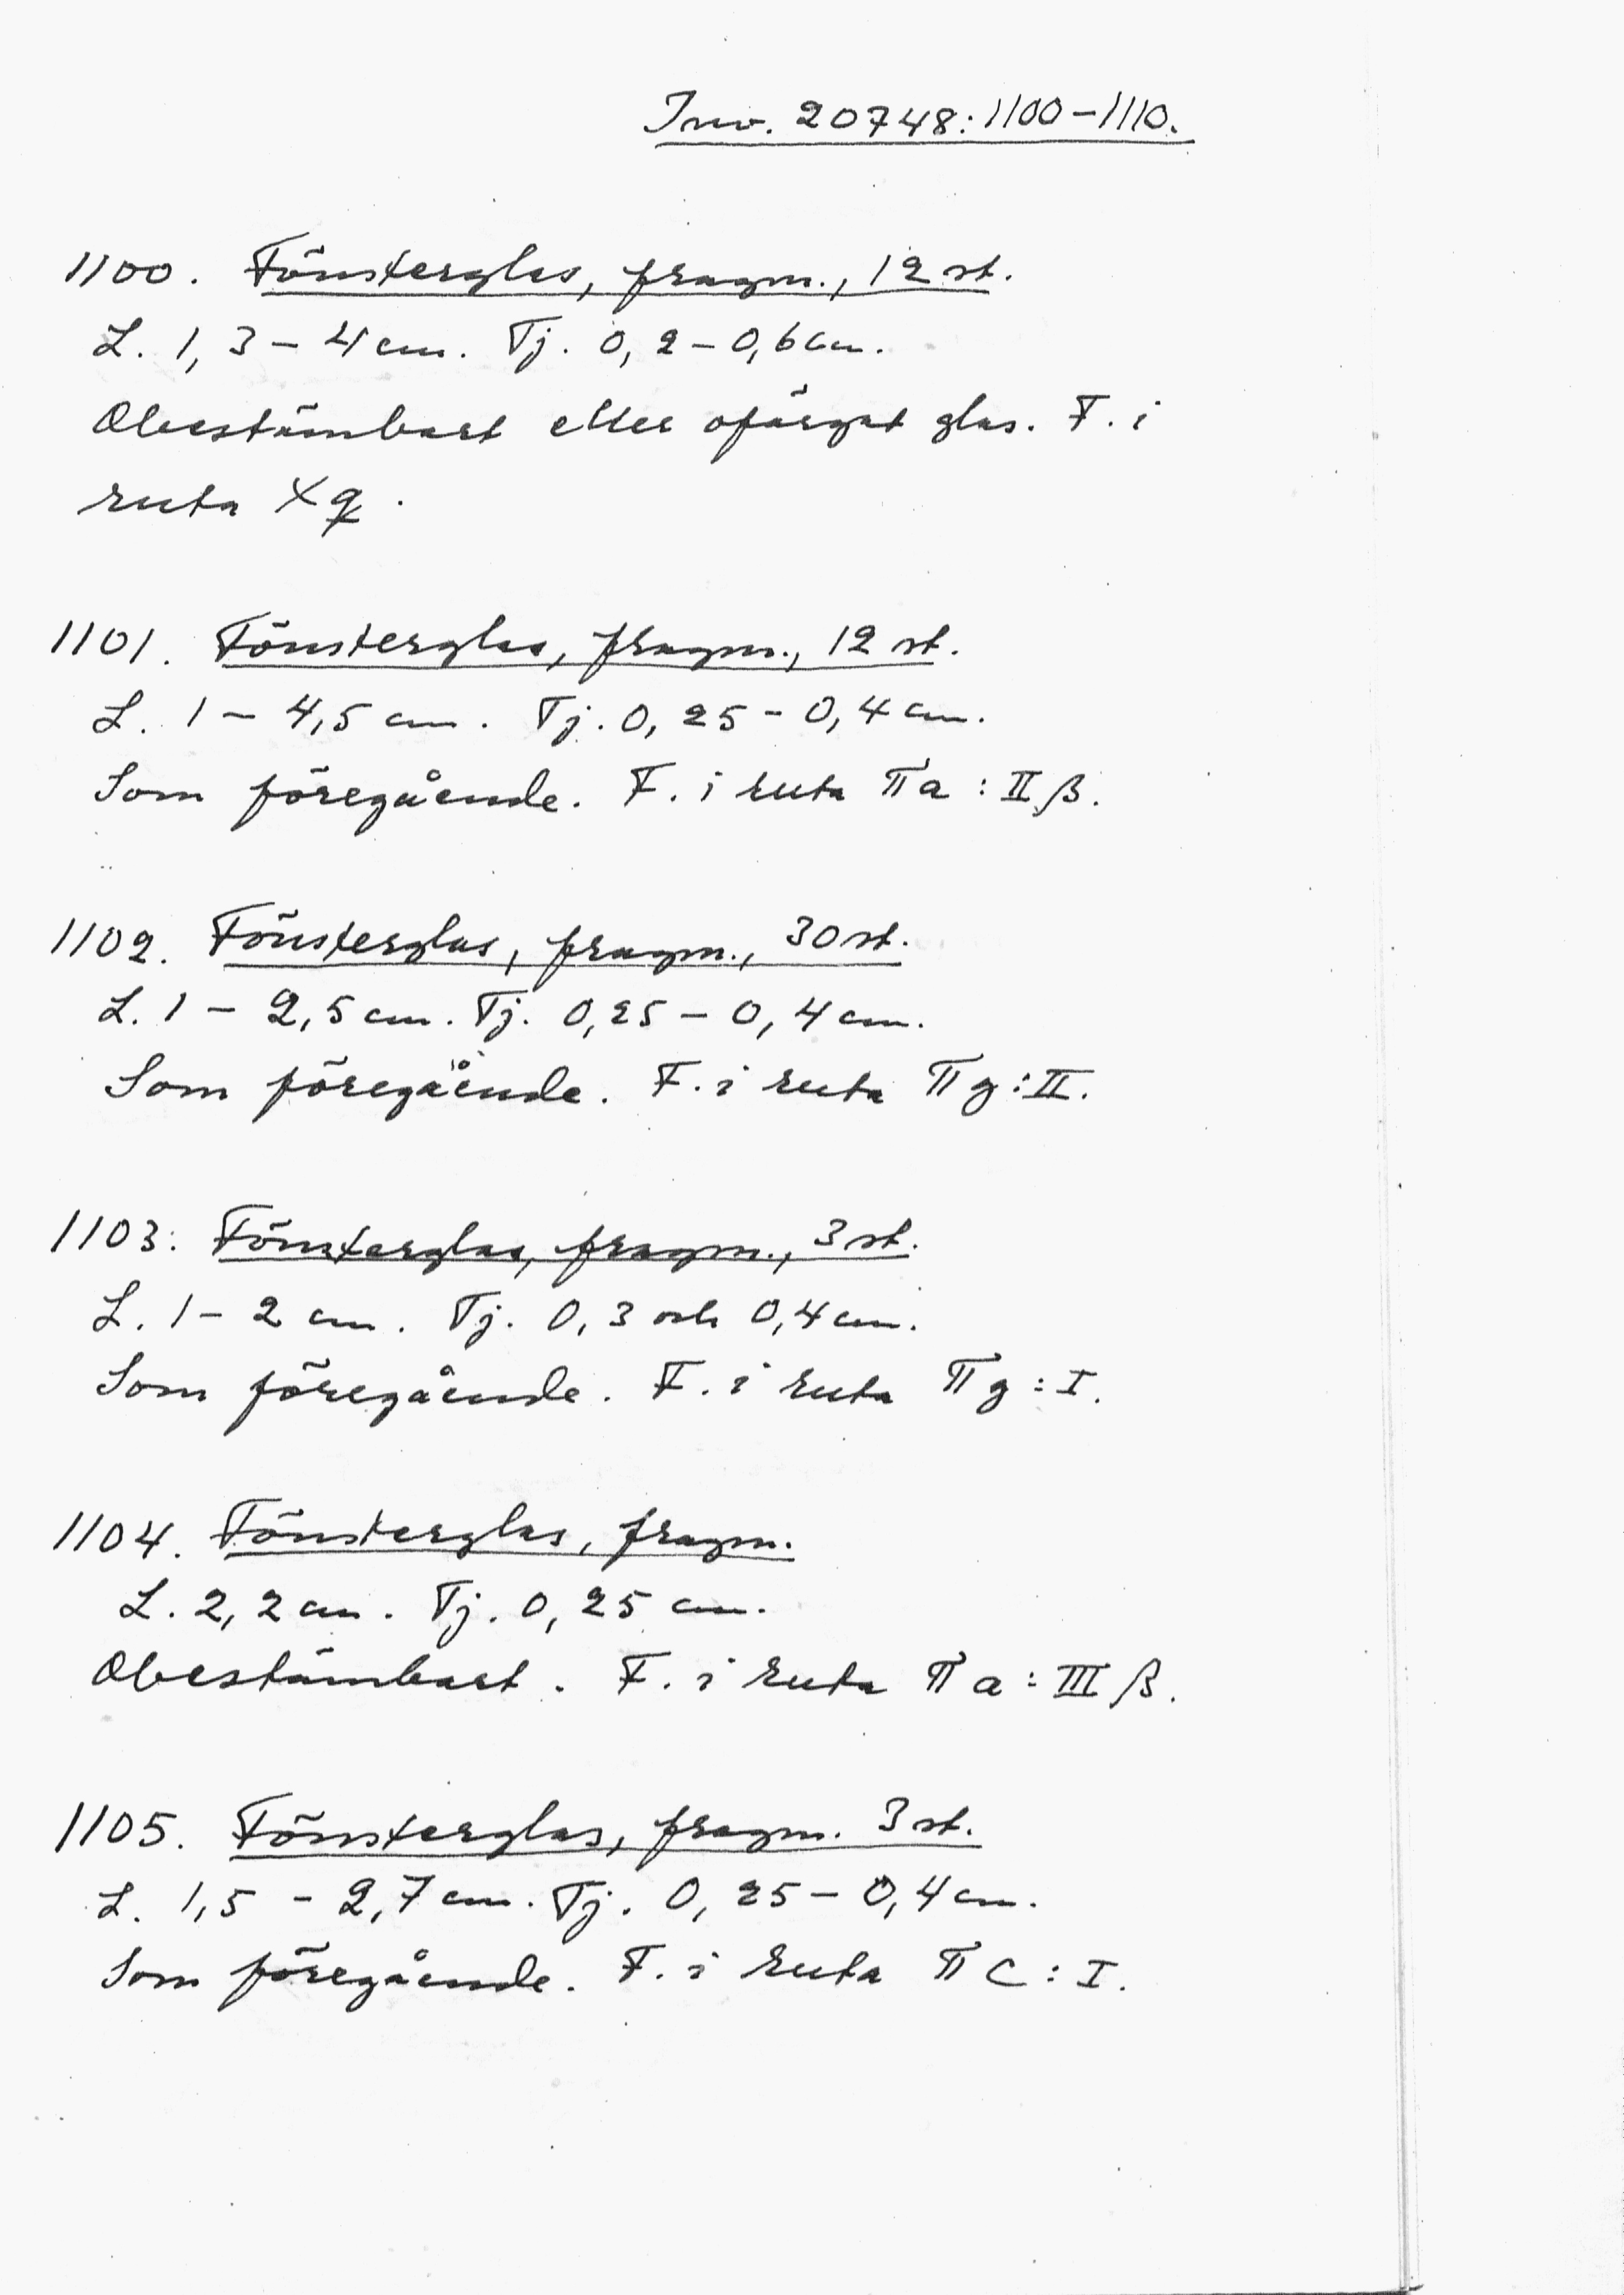 Inv. 20748:1100-1110.
1100. Fönsterglas, fragm., 12 st.
L. 1,3 - 4 cm. Tj. 0,2 - 0,6 cm.
Obestämbart eller ofärgat glas. F. i
ruta Xq.
1101. Fönsterglas, fragm., 12 st.
L. 1 - 4,5 cm. Tj. 0,25 - 0,4 cm.
Som föregående. F. i ruta πa : II β.
1102. Fönsterglas, fragm., 30 st.
L. 1 - 2,5 cm. Tj. 0,25 - 0,4 cm.
Som föregående. F. i ruta πg : II.
1103. Fönsterglas, fragm., 3 st.
L. 1 - 2 cm. Tj. 0,3 och 0,4 cm.
Som föregående. F. i ruta πg : I.
1104. Fönsterglas, fragm.
L. 2,2 cm. Tj. 0,25 cm.
Obestämbart. F. i ruta πa : III β.
1105. Fönsterglas, fragm. 3 st.
L. 1,5 - 2,7 cm. Tj. 0,25 - 0,4 cm.
Som föregående. F. i ruta πc : I.